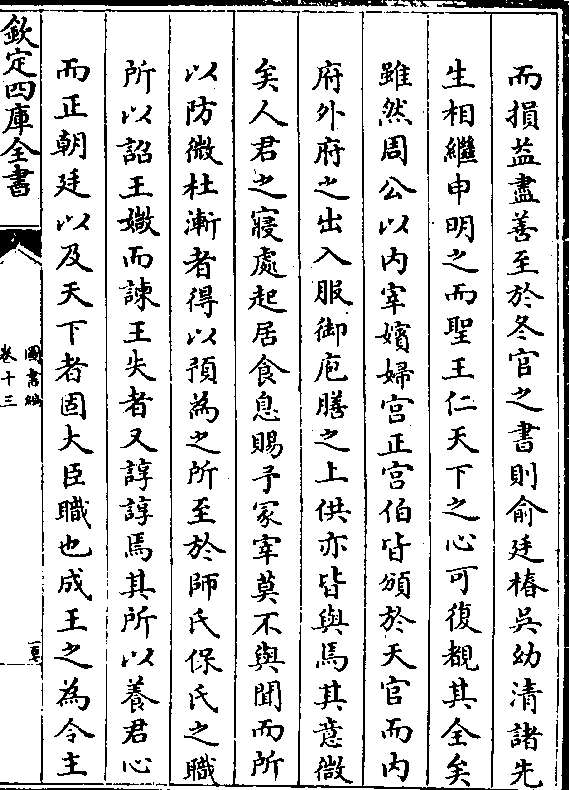 而損益盡善至於冬官之書則俞廷椿吳幼清諸先
生相繼申明之而聖王仁天下之心可復覩其全矣
雖然周公以内宰嬪婦宫正宫伯皆頒於天官而内
府外府之出入服御庖膳之上供亦皆與焉其意微
矣人君之寢處起居食息賜予冢宰莫不與聞而所
以防微杜漸者得以預為之所至於師氏保氏之職
所以詔王媺而諫王失者又諄諄焉其所以養君心
而正朝廷以及天下者固大臣職也成王之為令主
欽定四庫全書
圖書編
卷十三